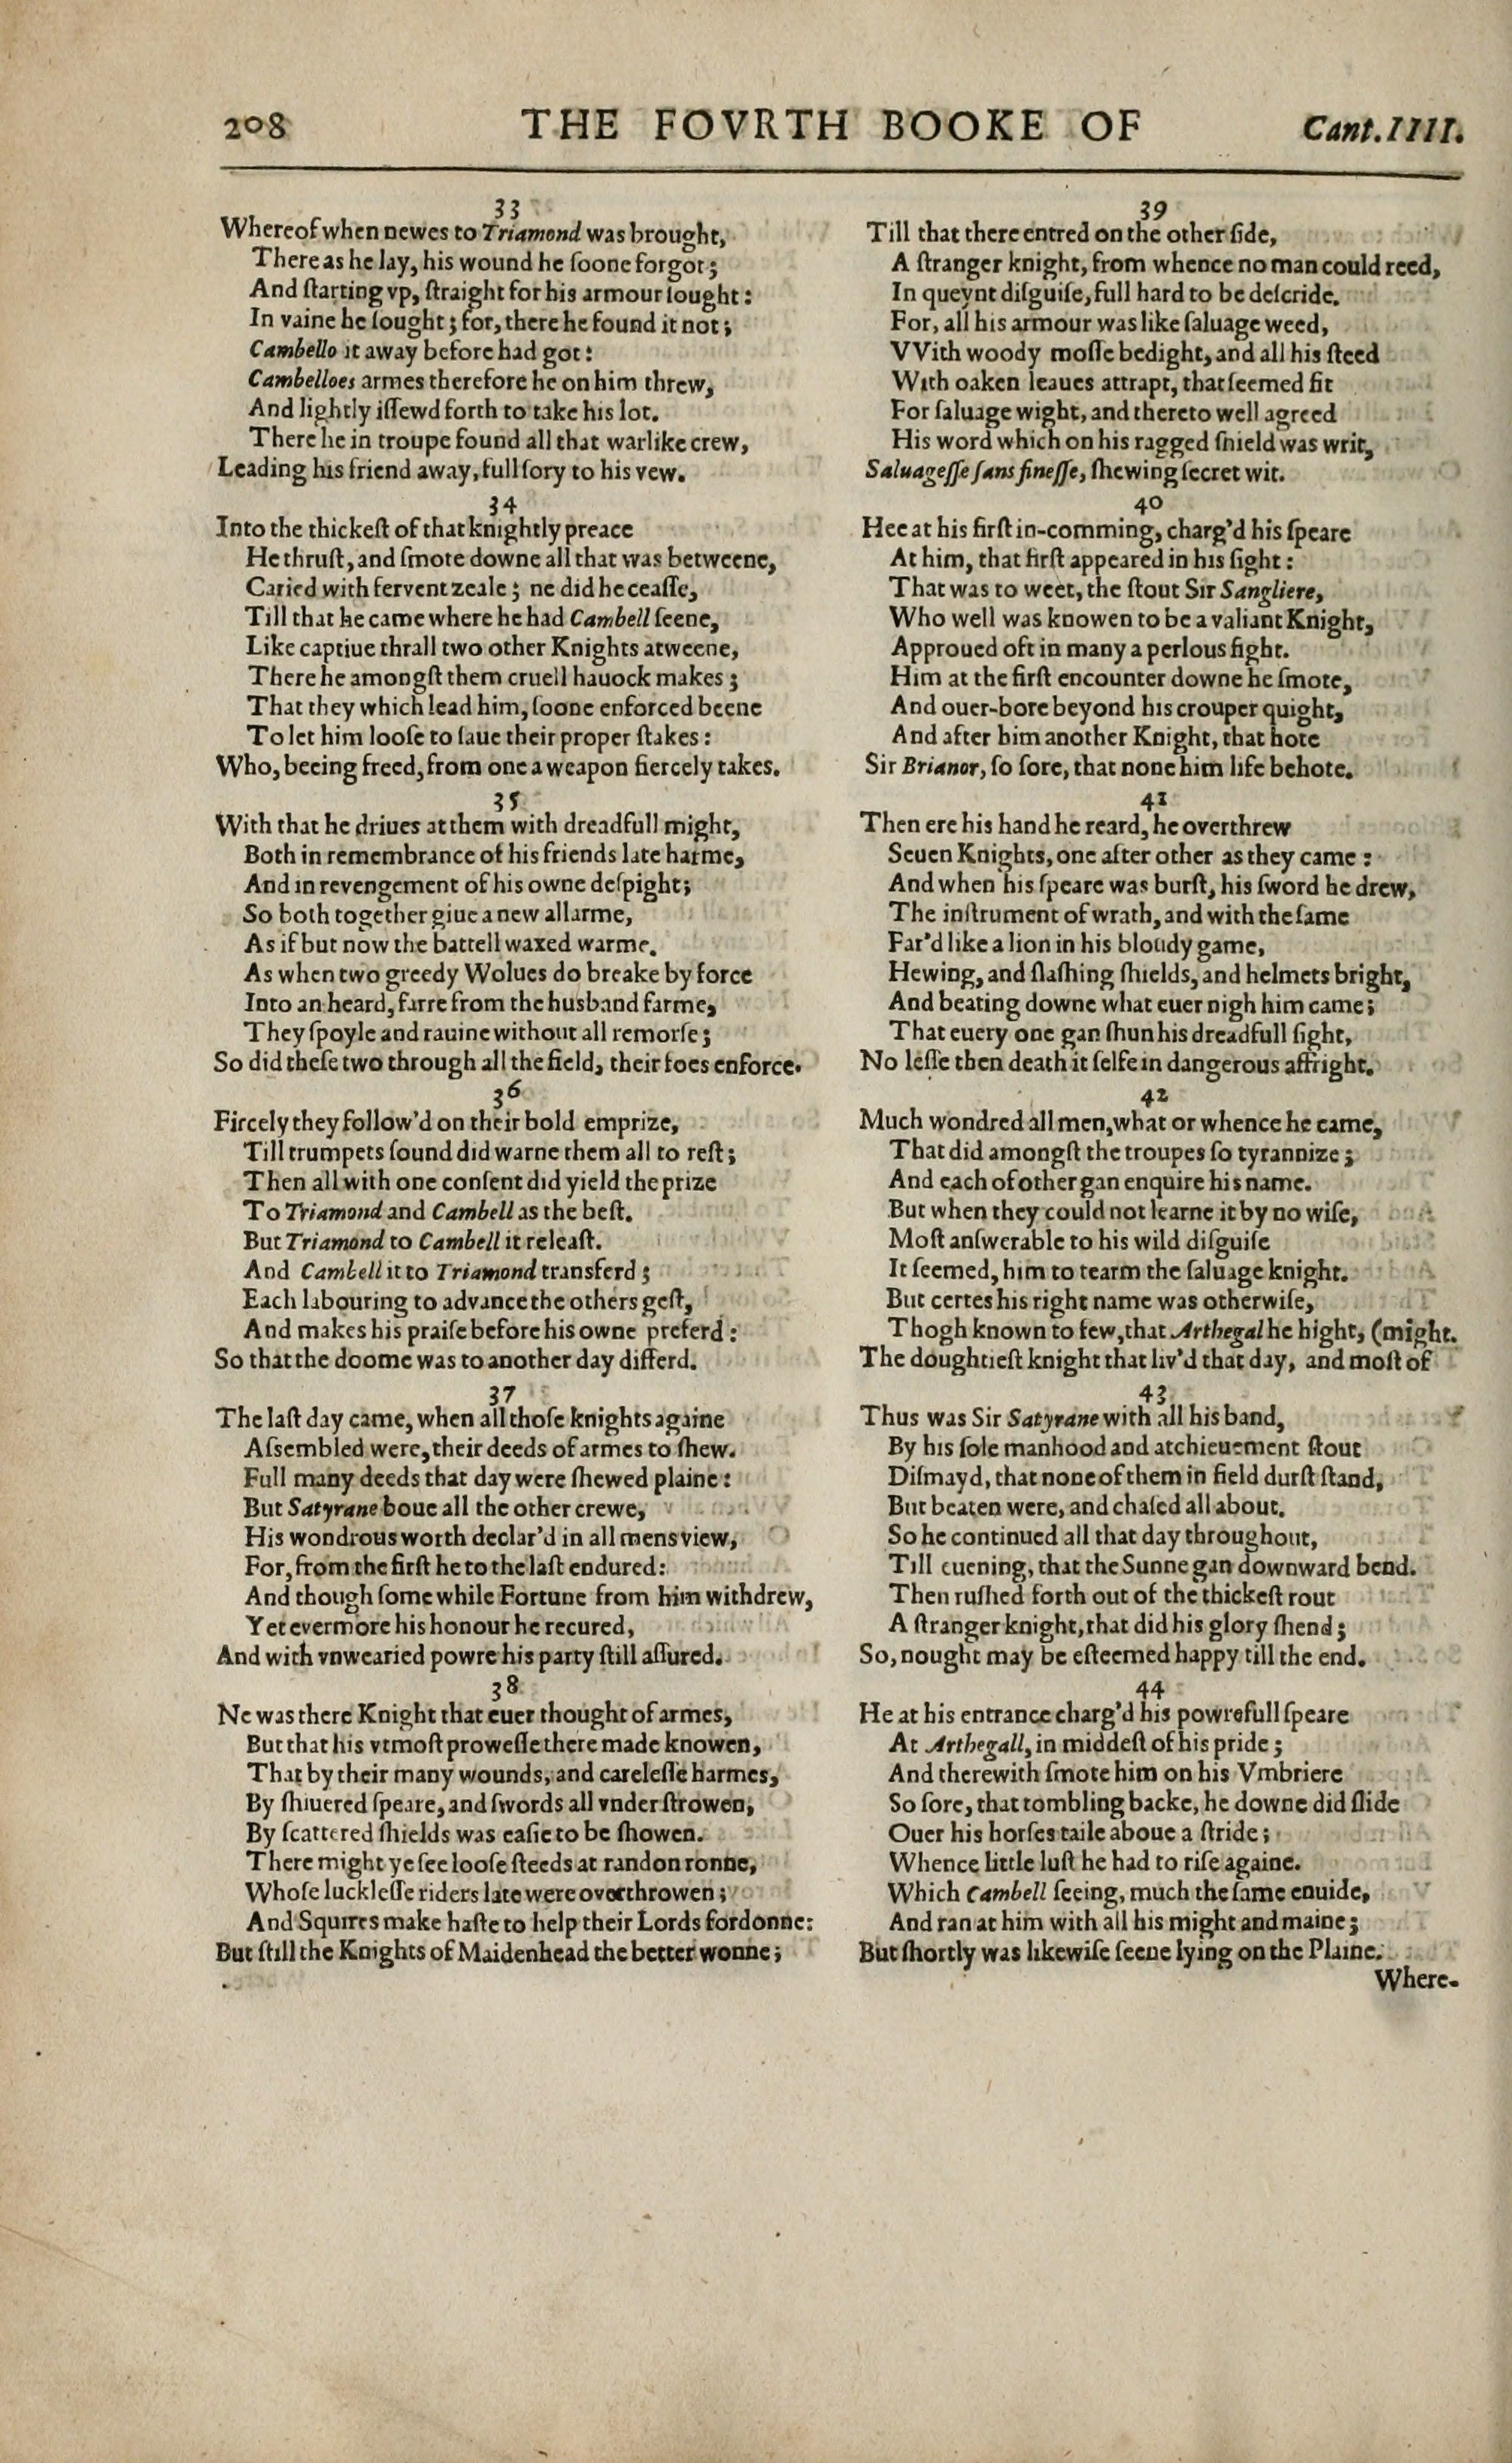 208 THE FOVRTH BOOKE OF Cant.IIII.
33
Whereof when newes to Triamond was brought,
There as he lay, his wound he ſoone forgot;
And ſtarting vp, ſtraight for his armour ſought:
In vaine he ſought; for, there he found it not;
Cambello it away before had got:
Cambelloes armes therefore he on him threw,
And lightly iſſewd forth to take his lot.
There he in troupe found all that warlike crew,
Leading his friend away, full ſory to his vew.
34
Into the thickeſt of that knightly preace
He thruſt, and ſmote downe all that was betweene,
Caried with fervent zeale; ne did he ceaſſe,
Till that he came where he had Cambell ſeene,
Like captiue thrall two other Knights atweene,
There he amongſt them cruell hauock makes;
That they which lead him, ſoone enforced beene
To let him looſe to ſaue their proper ſtakes:
Who, beeing freed, from one a weapon fiercely takes.
35
With that he driues at them with dreadfull might,
Both in remembrance of his friends late harme,
And in revengement of his owne deſpight;
So both together giue a new allarme,
As if but now the battell waxed warme.
As when two greedy Wolues do breake by force
Into an heard, farre from the husband farme,
They ſpoyle and rauine without all remorſe;
So did theſe two through all the field, their foes enforce.
36
Fircely they follow'd on their bold emprize,
Till trumpets ſound did warne them all to reſt;
Then all with one conſent did yield the prize
To Triamond and Cambell as the beſt.
But Triamond to Cambell it releaſt.
And Cambell it to Triamond transferd;
Each labouring to advance the others geſt,
And makes his praiſe before his owne preferd:
So that the doome was to another day differd.
37
The laſt day came, when all thoſe knights againe
Aſsembled were, their deeds of armes to ſhew.
Full many deeds that day were ſhewed plaine:
But Satyrane boue all the other crewe,
His wondrous worth declar'd in all mens view,
For, from the firſt he to the laſt endured:
And though ſome while Fortune from him withdrew,
Yet evermore his honour he recured,
And with vnwearied powre his party ſtill aſſured.
38
Ne was there Knight that euer thought of armes,
But that his vtmoſt proweſſe there made knowen,
That by their many wounds, and careleſſe harmes,
By ſhiuered ſpeare, and ſwords all vnder ſtrowen,
By ſcattered ſhields was eaſie to be ſhowen.
There might ye ſee looſe ſteeds at randon ronne,
Whoſe luckleſſe riders late were overthrowen;
And Squires make haſte to help their Lords fordonne:
But ſtill the Knights of Maidenhead the better wonne;
39
Till that there entred on the other ſide,
A ſtranger knight, from whence no man could reed,
In queynt diſguiſe, full hard to be deſcride.
For, all his armour was like ſaluage weed,
VVith woody moſſe bedight, and all his ſteed
With oaken leaues attrapt, that ſeemed fit
For ſaluage wight, and thereto well agreed
His word which on his ragged ſhield was writ,
Saluageſſe ſans fineſſe, ſhewing ſecret wit.
40
Hee at his firſt in-comming, charg'd his ſpeare
At him, that firſt appeared in his ſight:
That was to weet, the ſtout Sir Sangliere,
Who well was knowen to be a valiant Knight,
Approued oft in many a perlous fight.
Him at the firſt encounter downe he ſmote,
And ouer-bore beyond his crouper quight,
And after him another Knight, that hote
Sir Brianor, ſo ſore, that none him life behote.
41
Then ere his hand he reard, he overthrew
Seuen Knights, one after other as they came:
And when his ſpeare was burſt, his ſword he drew,
The inſtrument of wrath, and with the ſame
Far'd like a lion in his bloudy game,
Hewing, and ſlaſhing ſhields, and helmets bright,
And beating downe what euer nigh him came;
That euery one gan ſhun his dreadfull ſight,
No leſſe then death it ſelfe in dangerous affright.
42
Much wondred all men, what or whence he came,
That did amongſt the troupes ſo tyrannize;
And each of other gan enquire his name.
But when they could not learne it by no wiſe,
Moſt anſwerable to his wild diſguiſe
It ſeemed, him to tearm the ſaluage knight.
But certes his right name was otherwiſe,
Thogh known to few, that Arthegal he hight, (might.
The doughtieſt knight that liv'd that day, and moſt of
43
Thus was Sir Satyrane with all his band,
By his ſole manhood and atchieuement ſtout
Diſmayd, that none of them in field durſt ſtand,
But beaten were, and chaſed all about.
So he continued all that day throughout,
Till euening, that the Sunne gan downward bend.
Then ruſhed forth out of the thickeſt rout
A ſtranger knight, that did his glory ſhend;
So, nought may be eſteemed happy till the end.
44
He at his entrance charg'd his powrefull ſpeare
At Arthegall, in middeſt of his pride;
And therewith ſmote him on his Vmbriere
So ſore, that tombling backe, he downe did ſlide
Ouer his horſes taile aboue a ſtride;
Whence little luſt he had to riſe againe.
Which Cambell ſeeing, much the ſame enuide,
And ran at him with all his might and maine;
But ſhortly was likewiſe ſeene lying on the Plaine.
Where-